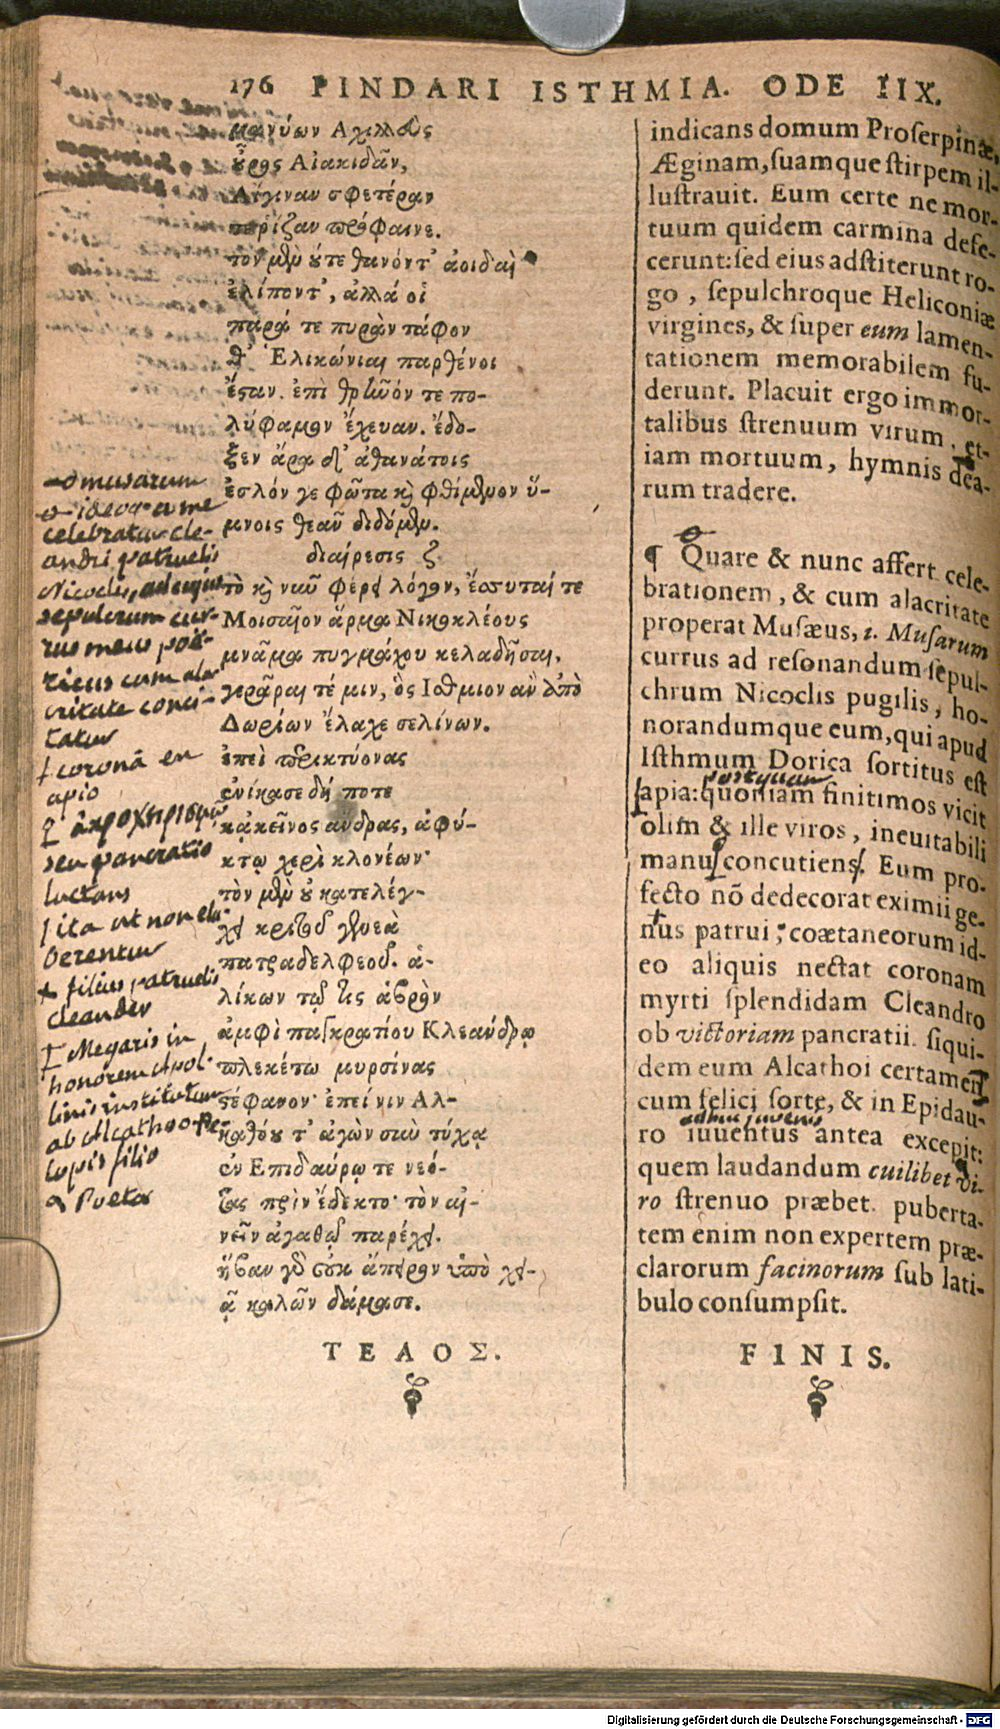 176 PINDARI ISTHMIA. ODE IIX.
μανύων Αχιλλεὺς
οὖρος Αἰακιδᾶν,
Αἴγιναν σφετέραν
τε ῥίζαν πρόφαινε.
τὸν μὲν οὔτε θανόντ' ἀοιδαὶ
ἐλίποντ', ἀλλά οἱ
παρά τε πυρὰν τάφον
θ' Ἑλικώνιαι παρθένοι
ἔσταν. ἐπὶ θρῆνόν τε πο-
λύφαμον ἔχευαν. ἔδο-
ξεν ἄρα δ' ἀθανάτοις
ἐσλόν γε φῶτα καὶ φθίμενον ὕ-
μνοις θεᾶν διδόμεν.
διαίρεσις ζ.
τὸ καὶ νῦν φέρει λόγον, ἔσσυταί τε
Μοισαῖον ἅρμα Νικοκλέους
μνᾶμα πυγμάχου κελαδῆσαι.
γεράραι τέ μιν, ὃς Ισθμιον ἂν ἀπὸ
Δωρίων ἔλαχε σελίνων.
ἐπεὶ περικτύονας
ἐνίκασε δή ποτε
κἀκεῖνος ἄνδρας, ἀφύ-
κτῳ χερὶ κλονέων·
τὸν μὲν οὐ κατελέγ-
χει κριτοῦ γενεὰ
πατραδελφεοῦ. ἁ-
λίκων τῷ τις ἁβρὸν
ἀμφὶ παγκρατίου Κλεάνδρῳ
πλεκέτω μυρσίνας
στέφανον· ἐπεί νιν Αλ-
καθόου τ' ἀγὼν σὺν τύχᾳ
ἐν Επιδαύρῳ τε νεό-
τας πρὶν ἔδεκτο· τὸν αἰ-
νεῖν ἀγαθῷ παρέχει.
ἥβαν γὰρ οὐκ ἄπειρον ὑπὸ χει-
ᾷ καλῶν δάμασε.
ΤΕΛΟΣ.
indicans domum Proserpinæ,
Æginam, suamque stirpem il-
lustrauit. Eum certe ne mor-
tuum quidem carmina defe-
cerunt: sed eius adstiterunt ro-
go, sepulchroque Heliconiæ
virgines, & super eum lamen-
tationem memorabilem fu-
derunt. Placuit ergo immor-
talibus strenuum virum, et-
iam mortuum, hymnis dea-
rum tradere.
¶ Quare & nunc affert cele-
brationem, & cum alacritate
properat Musæus, i. Musarum
currus ad resonandum sepul-
chrum Nicoclis pugilis, ho-
norandumque eum, qui apud
Isthmum Dorica sortitus est
postquam
apia: quoniam finitimos vicit
olim & ille viros, ineuitabili
manu concutiens. Eum pro-
fecto nō dedecorat eximii ge-
nus patrui; coætaneorum id-
eo aliquis nectat coronam
myrti splendidam Cleandro
ob victoriam pancratii. siqui-
dem eum Alcathoi certamen
cum felici sorte, & in Epidau-
adhuc juvenis
ro iuuentus antea excepit:
quem laudandum cuilibet vi-
ro strenuo præbet. puberta-
tem enim non expertem præ-
clarorum facinorum sub lati-
bulo consumpsit.
FINIS.
musarum
ideoq a me
celebratur cle-
andri patruelis
Nicocles, ad cujus
sepulcrum cur-
rus meus poë-
ticus cum ala-
critate conci-
tatur
coronâ en
apio
seu pancratio
luctans
ita ut non ela-
berentur
filius patruelis
cleander
Megaris in
honorem Apol-
linis institutum
ab Alcathoo Pe-
lopis filio
a Poeta
Digitalisierung gefördert durch die Deutsche Forschungsgemeinschaft - DFG